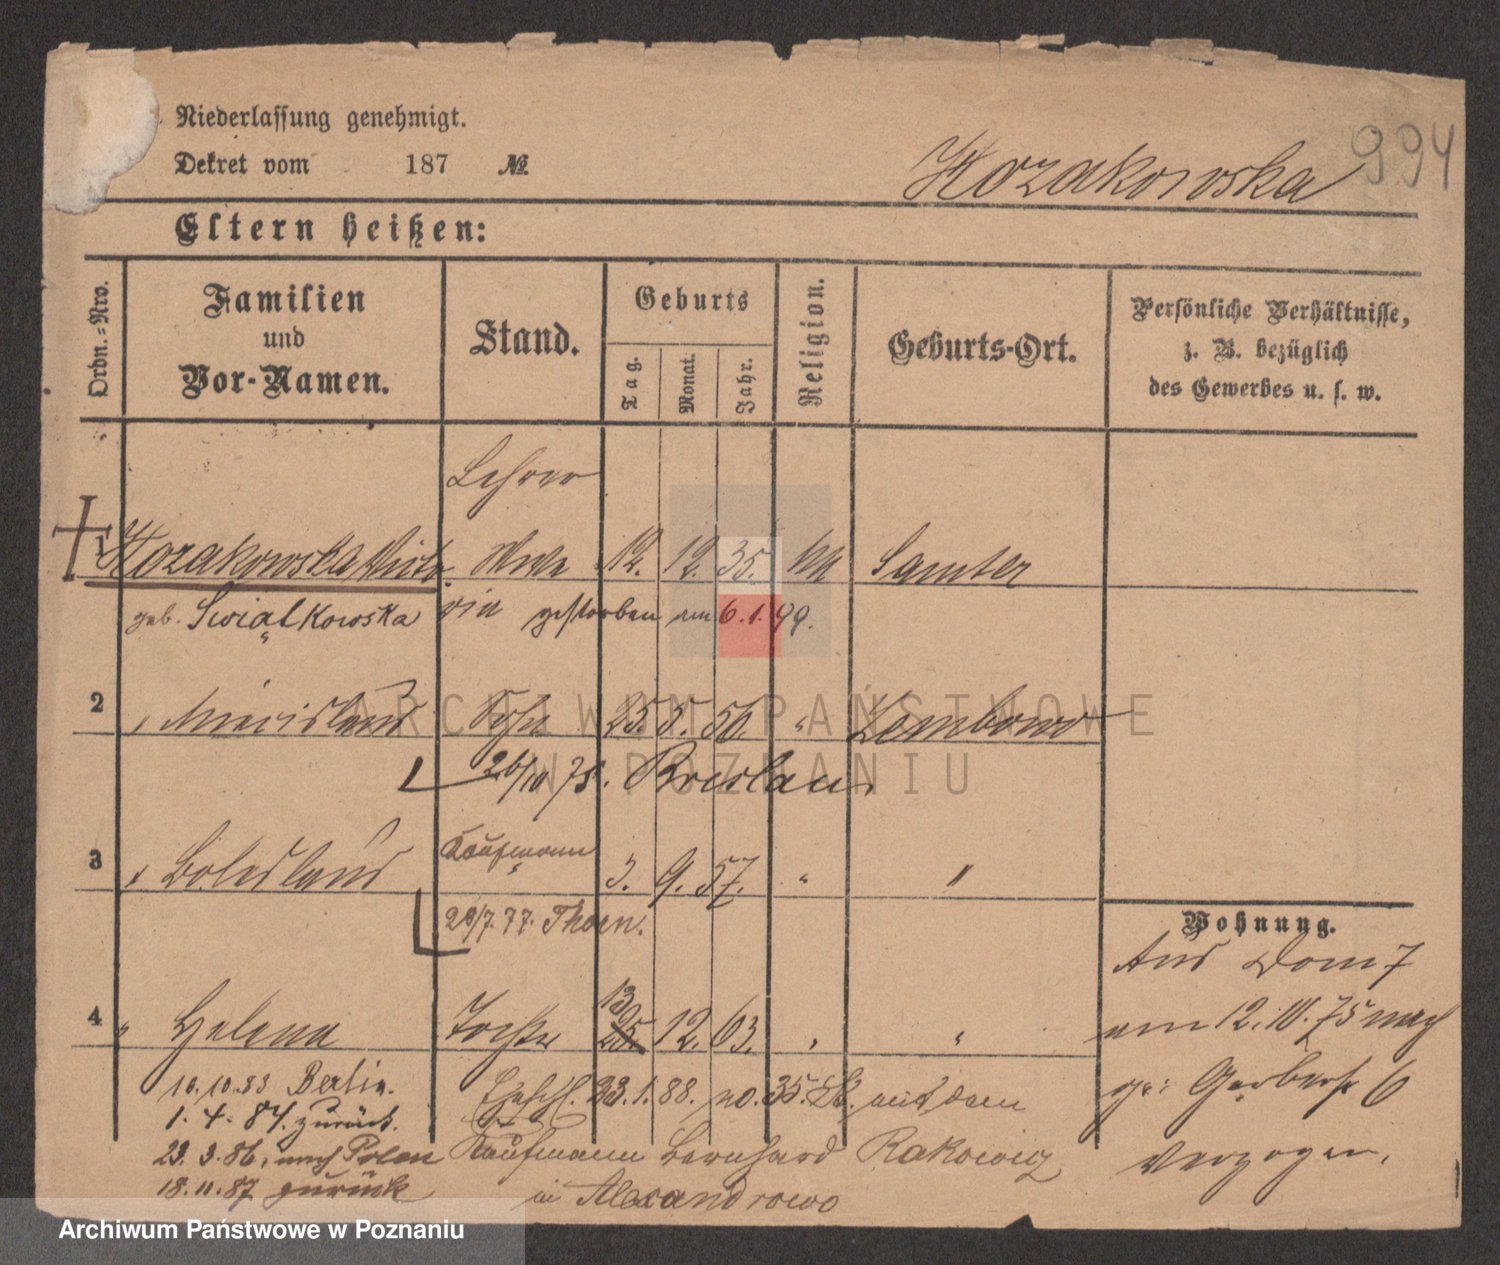 Niederlassung genehmigt.
Dekret vom 187 №
Kozakowska 994
Eltern heißen:
Ordn.=Nro.
Familien
und
Vor-Namen.
Stand.
Geburts
Tag.
Monat.
Jahr.
Religion.
Geburts-Ort.
Persönliche Verhältnisse,
z. B. bezüglich
des Gewerbes u. s. w.
Lehrer
1 Kozakowska Victo- Wwe 12. 12. 35. kth Samter
geb. Swiątkowska ria gestorben am 6.1.99.
2 " Miecislaus Sohn 25. 5. 56. " Zembowo
26/10 75. Breslau.
3 " Boleslaus Kaufmann " 3. 9. 57. " "
29/7. 77. Thorn.
Wohnung.
Aus Dom 7
4 " Helena Tochter 13 25. 12. 63. " "
am 12.10.75 nach
10.10.83 Berlin.
Ehesch. 23.1.88. no. 35. St. mit dem
gr: Gerberst 6
1.4.84. zurück.
23.3.86, nach Polen Kaufmann Bernhard Rakowicz
verzogen.
18.11.87 zurück in Alexandrowo
ARCHIWUM PAŃSTWOWE
W POZNANIU
Archiwum Państwowe w Poznaniu